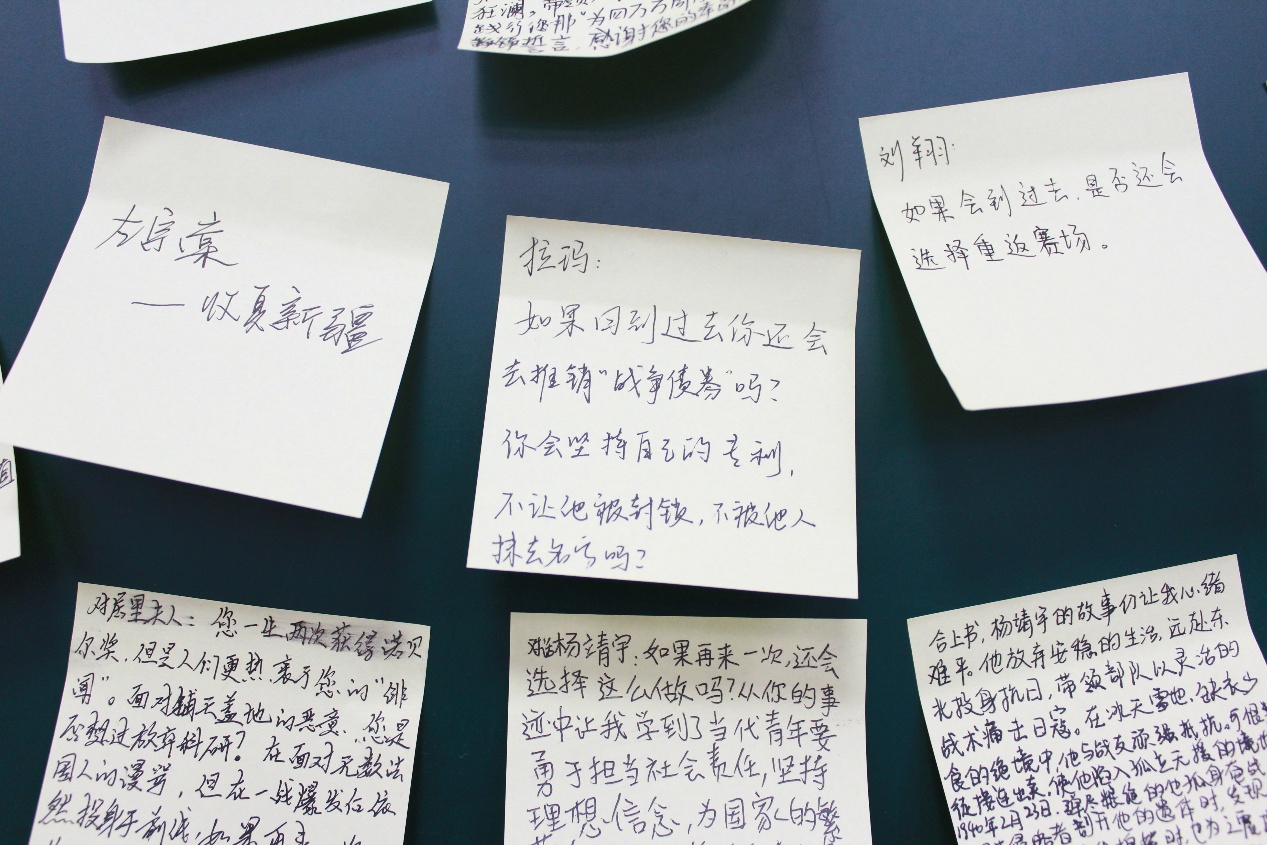 为四万万同
线行您那
誓言,感谢您的幸
左宗棠
——收复新疆
拉玛:
如果回到过去你还会
去推销“战争债券”吗?
你会坚持自己的专利,
不让他被封锁,不被他人
抹去名字吗?
刘翔:
如果会到过去,是否还会
选择重返赛场。
对居里夫人:您一生两次获得诺贝
尔奖,但是人们更热衷于您的“绯
闻”。面对铺天盖地的恶意,您是
否想过放弃科研?在面对无数法
国人的谩骂,但在一战爆发后依
然投身于前线,如果再
对杨靖宇:如果再来一次,还会
选择这么做吗?从你的事
迹中让我学到了当代青年要
勇于担当社会责任,坚持
理想信念,为国家的繁
合上书,杨靖宇的故事仍让我心绪
难平。他放弃安稳的生活,远赴东
北投身抗日,带领部队以灵活的
战术痛击日寇。在冰天雪地、缺衣少
食的绝境中,他与战友顽强抵抗。可恨
徒接连出来,使他陷入孤立无援的境地
1940年2月23日,弹尽粮绝的他孤身奋战
剖开他的遗体时,发现